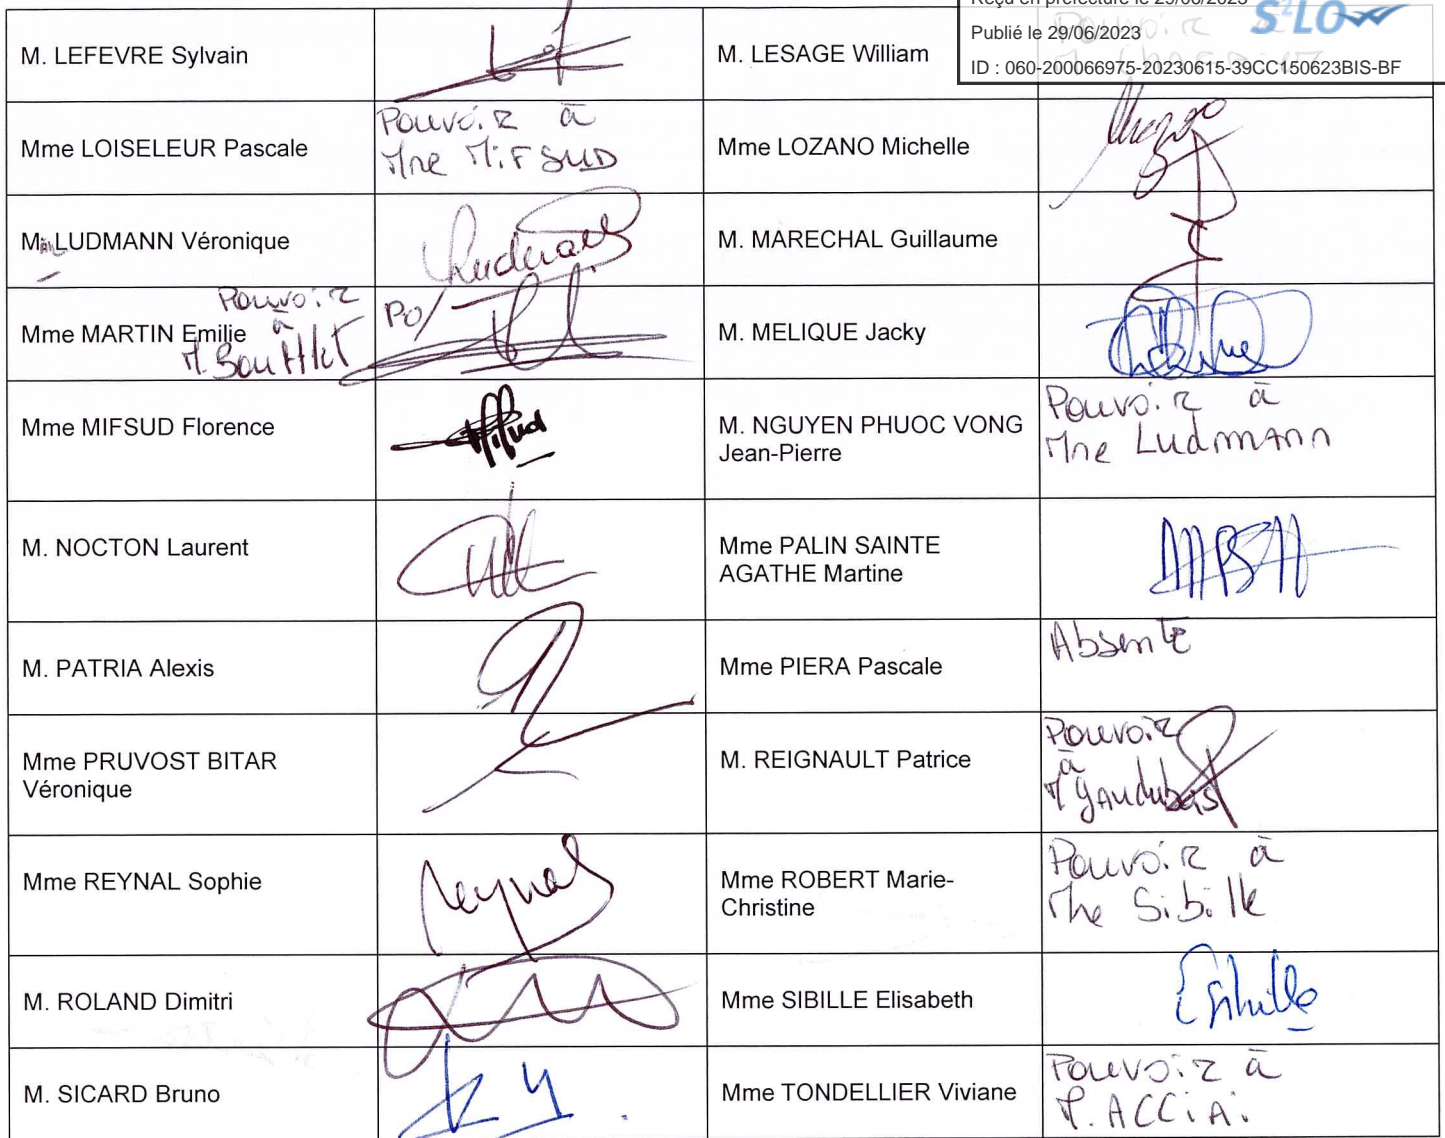 Reçu en préfecture le 29/06/2023
Publié le 29/06/2023
S²LO
ID : 060-200066975-20230615-39CC150623BIS-BF
M. LEFEVRE Sylvain
M. LESAGE William
Pouvoir
Mme LOISELEUR Pascale
Pouvoir à
Mme MIFSUD
Mme LOZANO Michelle
LUDMANN Véronique
M. MARECHAL Guillaume
Mme MARTIN Emilie
Pouvoir
à
M. Boufflet
Po/
M. MELIQUE Jacky
Mme MIFSUD Florence
Mifsud
M. NGUYEN PHUOC VONG
Jean-Pierre
Pouvoir à
Mme Ludmann
M. NOCTON Laurent
Mme PALIN SAINTE
AGATHE Martine
MPSA
M. PATRIA Alexis
Mme PIERA Pascale
Absente
Mme PRUVOST BITAR
Véronique
M. REIGNAULT Patrice
Pouvoir
à
M Gaudubois
Mme REYNAL Sophie
Reynal
Mme ROBERT Marie-
Christine
Pouvoir à
Mme Sibille
M. ROLAND Dimitri
Mme SIBILLE Elisabeth
ESibille
M. SICARD Bruno
Mme TONDELLIER Viviane
Pouvoir à
M. ACCIAI